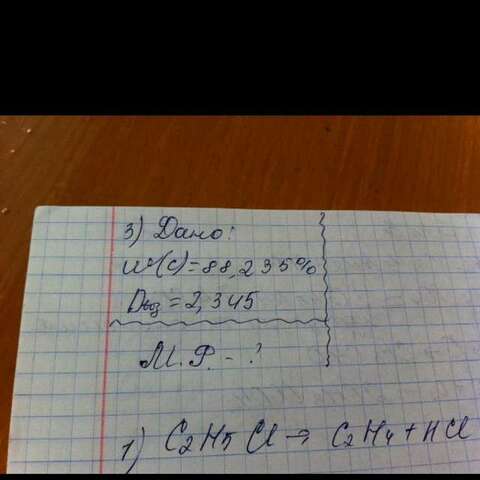 3) Дано:
W(C)=88,235%
Dвоз=2,345
М.Р. - ?
1) C2H5Cl → C2H4 + HCl